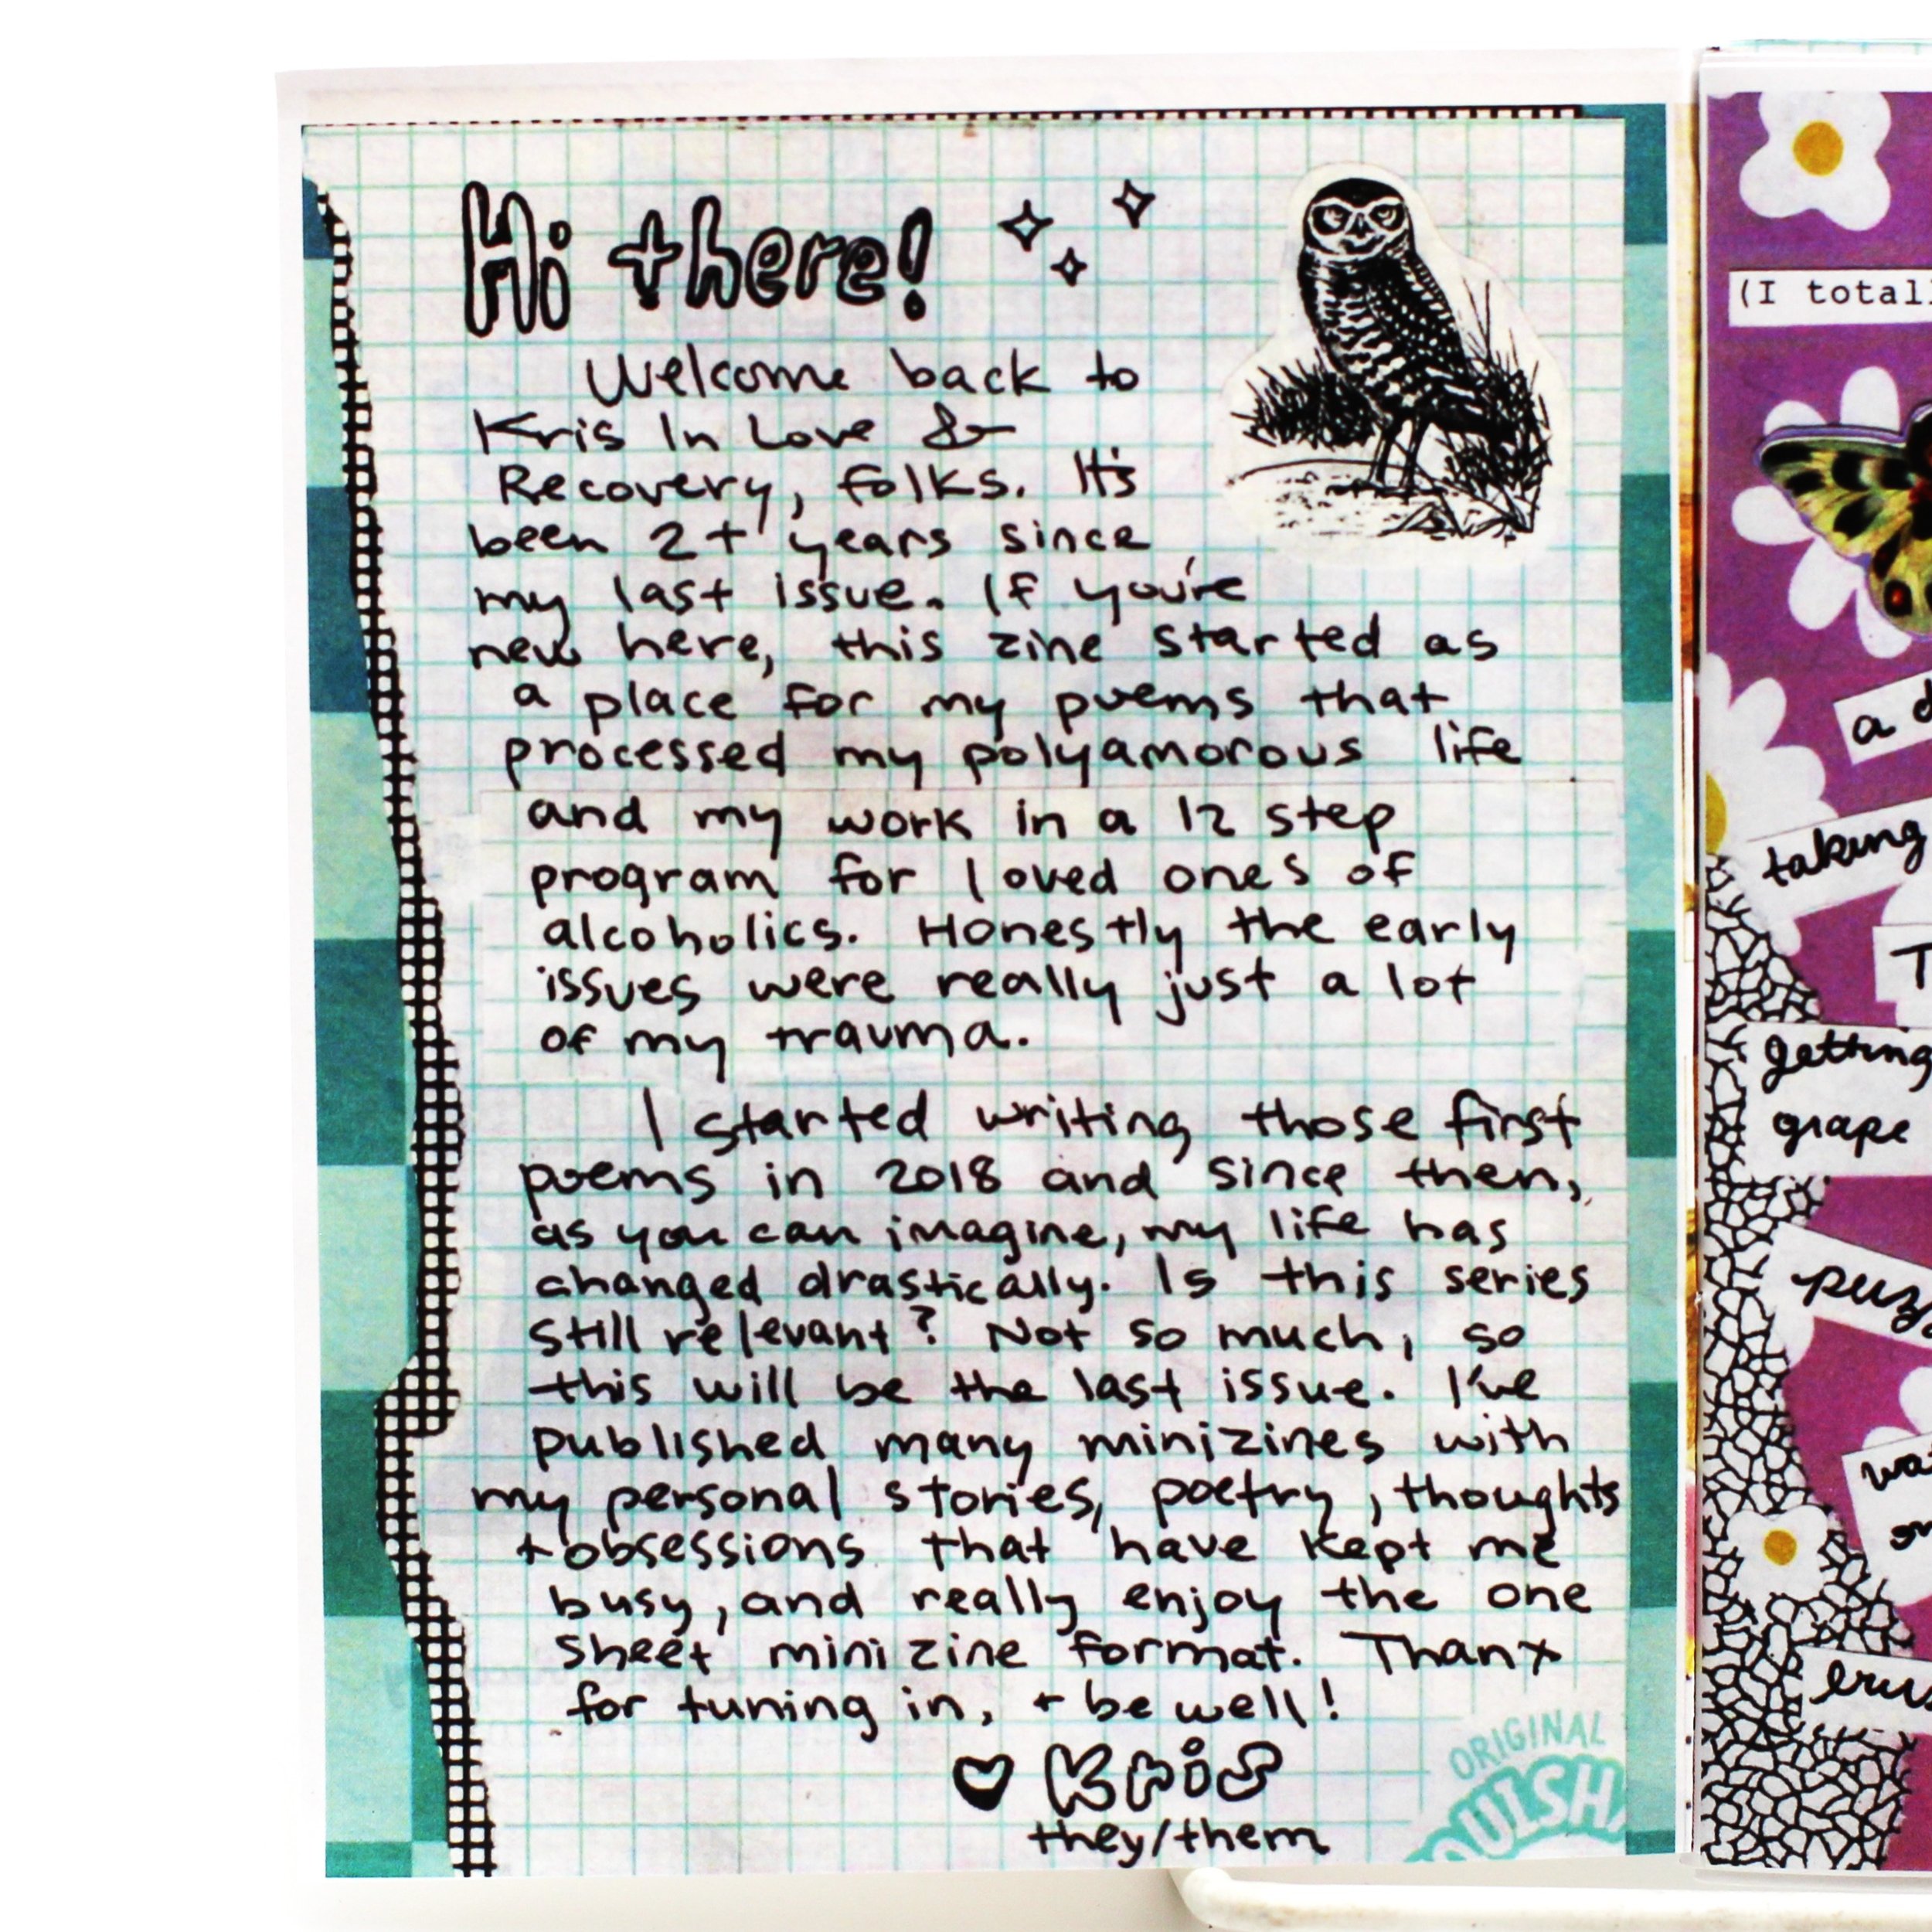 Hi there!
Welcome back to
Kris In Love &
Recovery, folks. It's
been 2+ years since
my last issue. If you're
new here, this zine started as
a place for my poems that
processed my polyamorous life
and my work in a 12 step
program for loved ones of
alcoholics. Honestly the early
issues were really just a lot
of my trauma.
I started writing those first
poems in 2018 and since then,
as you can imagine, my life has
changed drastically. Is this series
still relevant? Not so much, so
this will be the last issue. I've
published many minizines with
my personal stories, poetry, thoughts
+ obsessions that have kept me
busy, and really enjoy the one
sheet minizine format. Thanx
for tuning in, + be well!
♥ Kris
they/them
ORIGINAL
(I total
a d
taking
T
getting
grape
puz
wa